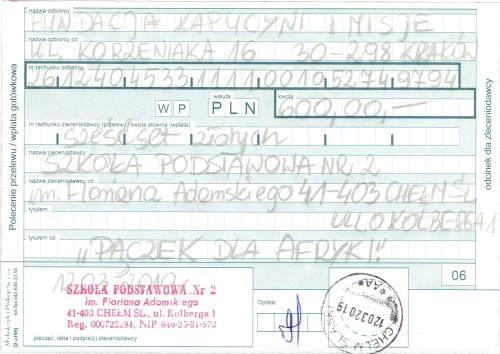 nazwa odbiorcy
FUNDACJA KAPUCYNI I MISJE
nazwa odbiorcy cd.
UL. KORZENIAKA 16 30-298 KRAKÓW
nr rachunku odbiorcy
26 1240 4533 1111 0010 5274 9794
waluta
kwota
W P PLN 600,00,-
nr rachunku zleceniodawcy (przelew) / kwota słownie (wpłata)
sześćset złotych
nazwa zleceniodawcy
SZKOŁA PODSTAWOWA NR 2
nazwa zleceniodawcy cd.
im. Floriana Adamskiego 41-403 CHEŁM ŚL.
tytułem
UL. OKOLBERGA 1
tytułem cd.
"PĄCZEK DLA AFRYKI!"
12.03.2019r.
06
SZKOŁA PODSTAWOWA Nr 2
im. Floriana Adamskiego
41-403 CHEŁM ŚL, ul. Kolberga 1
Reg. 000722294, NIP 646-25-81-572
pieczęć, data i podpis(y) zleceniodawcy
Opłata:
12032019
Polecenie przelewu / wpłata gotówkowa
odcinek dla zleceniodawcy